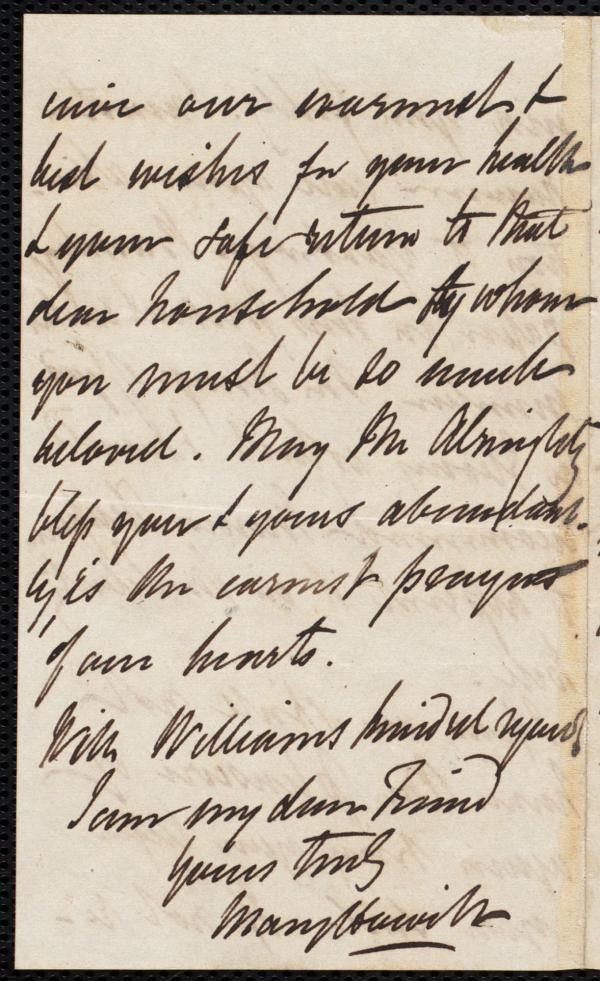 our warmest &
best wishes for your health
& your safe return to that
dear household by whom
you must be so much
beloved. May the Almighty
bless you & yours abundant-
ly, is the earnest prayer
of our hearts.
With Williams kindest regards
I am my dear Friend
yours truly
Mary Howitt